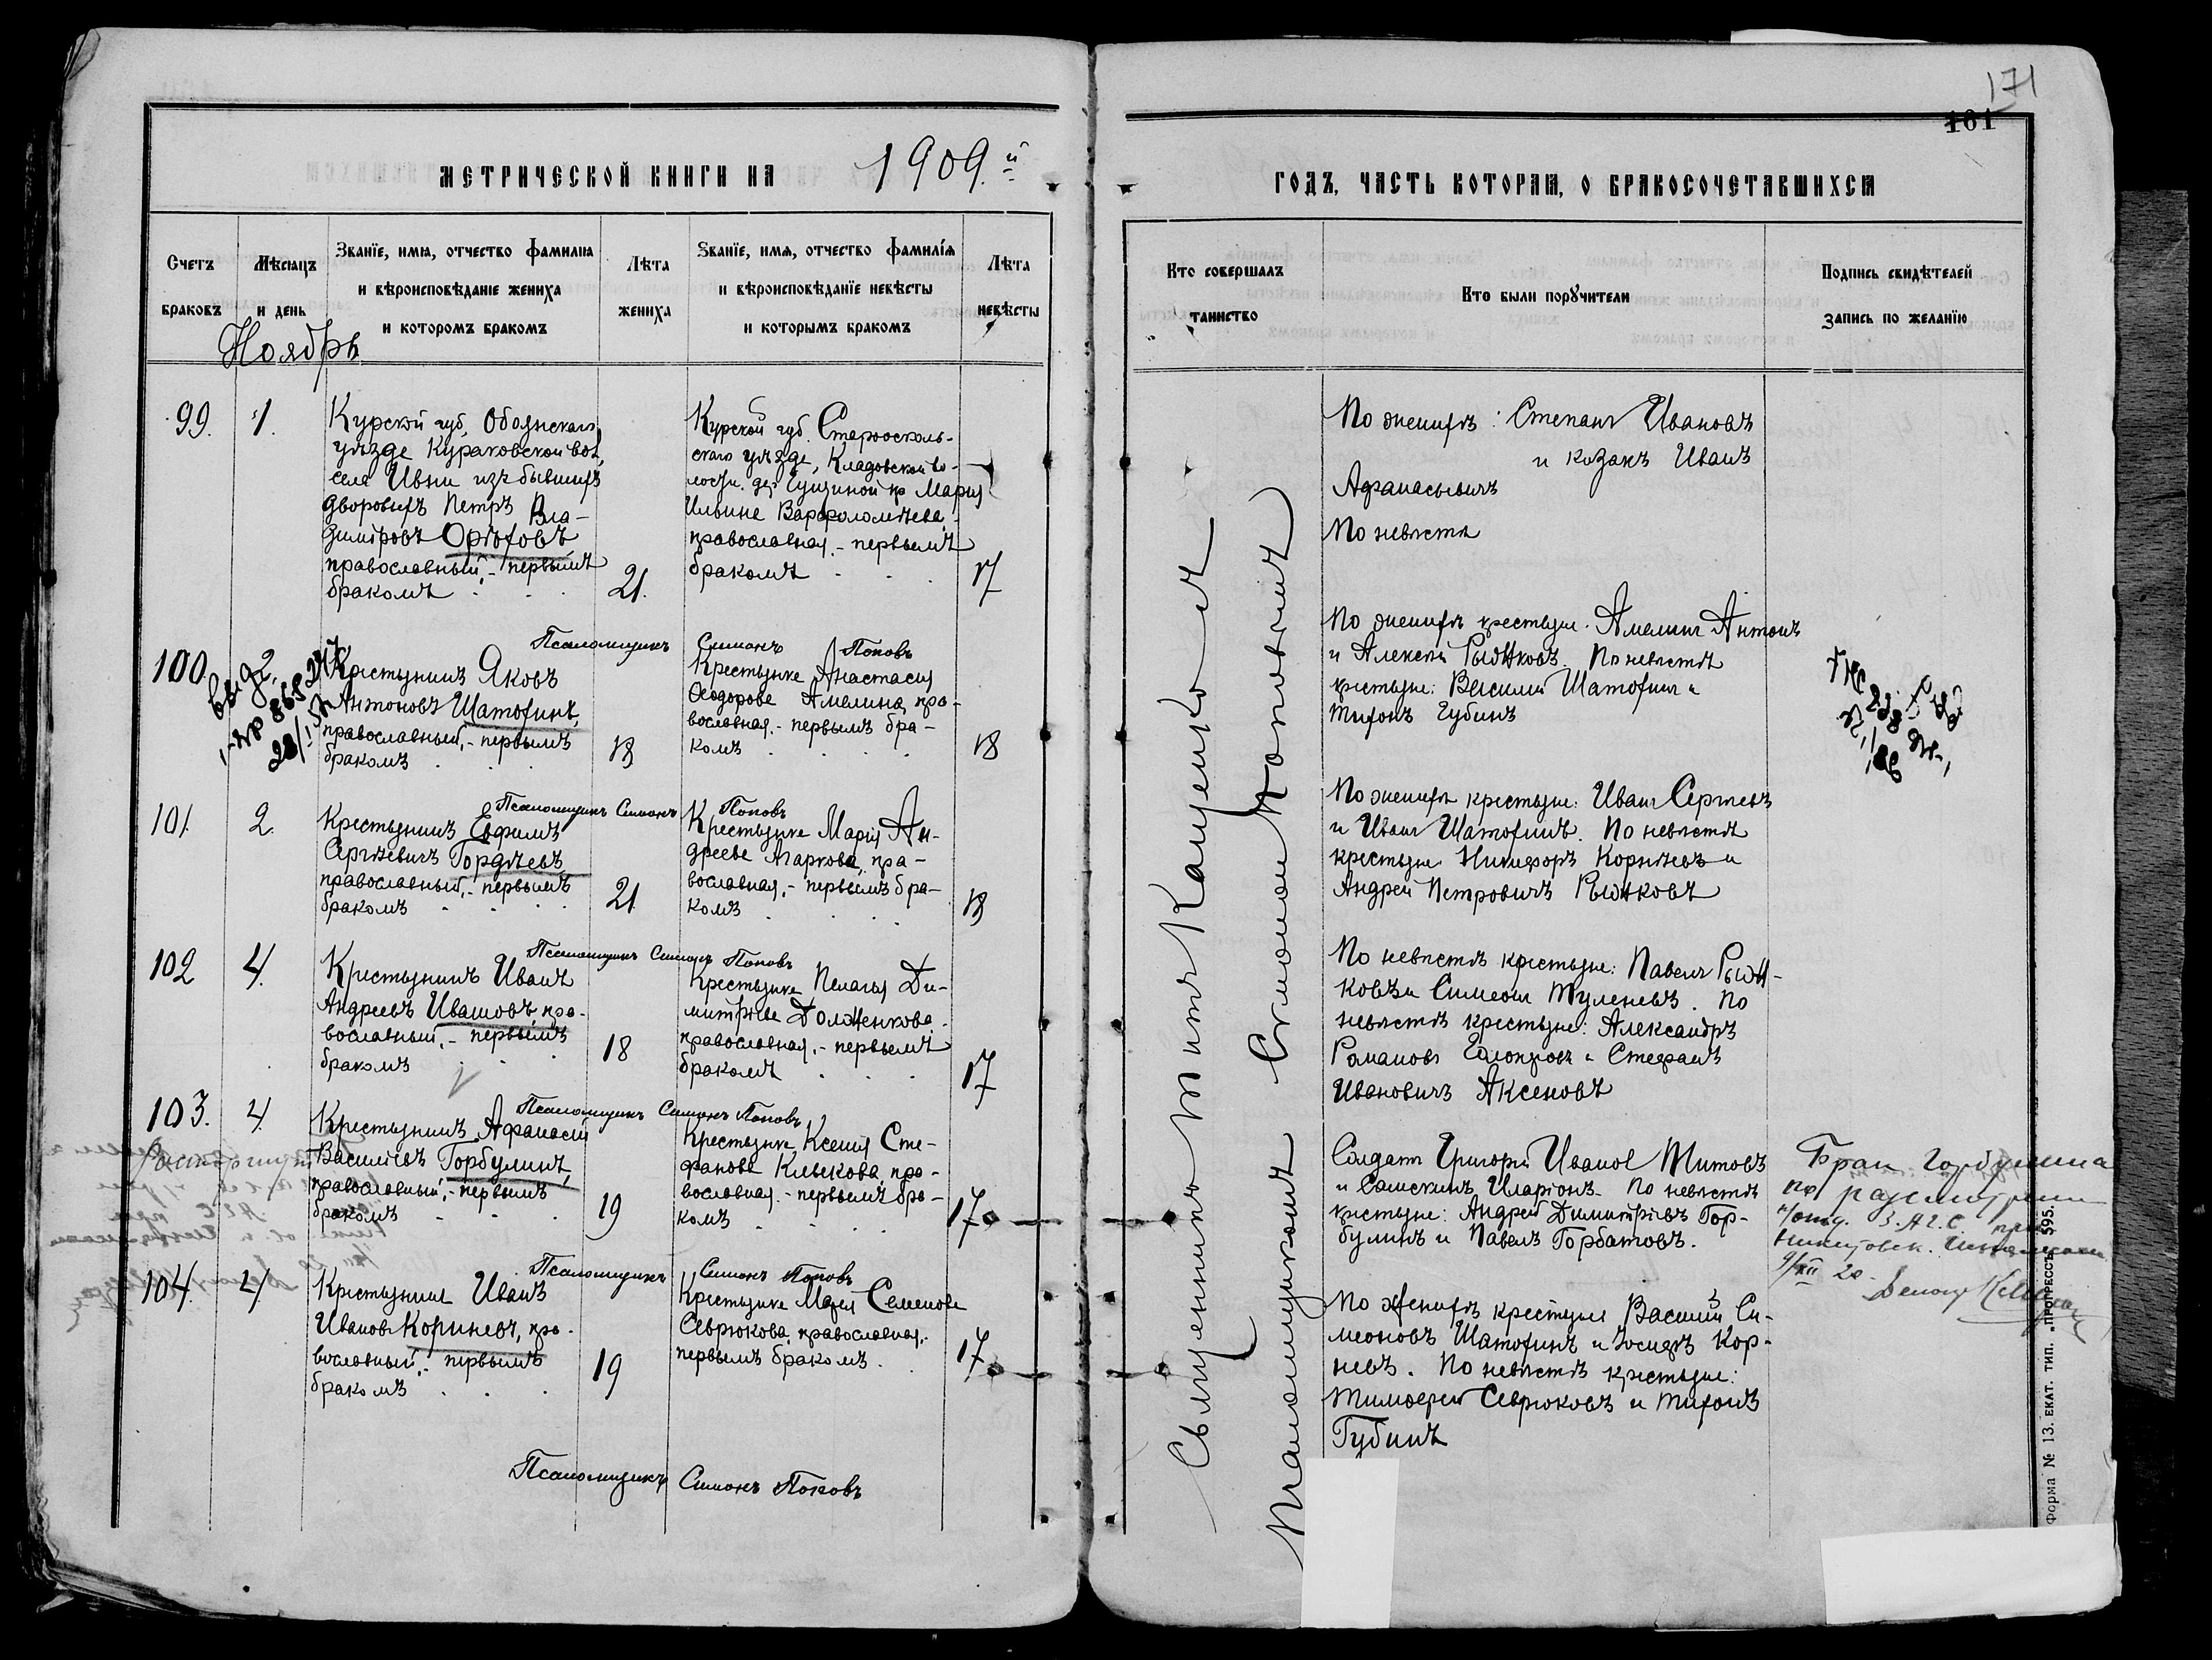 171
161
МЕТРИЧЕСКОЙ КНИГИ НА 1909.й
ГОДЪ, ЧАСТЬ КОТОРАЯ, О БРАКОСОЧЕТАВШИХСЯ
Счетъ
браковъ
Мѣсяцъ
и день
Званіе, имя, отчество фамилиа
и вѣроисповѣданіе жениха
и которомъ бракомъ
Лѣта
жениха
Званіе, имя, отчество фамилія
и вѣроисповѣданіе невѣсты
и которымъ бракомъ
Лѣта
невѣсты
Кто совершалъ
таинство
Кто были поручители
Подпись свидѣтелей
запись по желанію
Ноябрь
99. 1.
Курской губ. Обоянскаго
уѣзда Кураковской вол.
села Ивни изъ бывшихъ
дворовыхъ Петръ Вла-
диміровъ Орѣховъ
православный, - первымъ
бракомъ 21.
Курской губ. Староосколь-
скаго уѣзда, Кладовской во-
лости. дер. кр. Марія
Ильина Варфоломѣева
православная. - первымъ
бракомъ 17
По женихѣ: Степанъ Ивановъ
и козакъ Иванъ
Афанасьевичъ
По невѣстѣ
Псаломщикъ Симонъ Поповъ
100. 2.
Крестьянинъ Яковъ
Антоновъ Шатохинъ,
православный, - первымъ
бракомъ 18
Крестьянка Анастасія
Ѳеодорова Амелина, пра-
вославная. - первымъ бра-
комъ 18
По женихѣ крестьяне: Антонъ
и Алексѣй Рыжковъ. По невѣстѣ
крестьяне: Василій Шатохинъ и
Тихонъ Губинъ
Псаломщикъ Симонъ Поповъ
101. 2.
Крестьянинъ Евфимъ
Сергѣевичъ Гордѣевъ,
православный, - первымъ
бракомъ 21
Крестьянка Марія Ан-
дреева Агаркова, пра-
вославная, - первымъ бра-
комъ 18
По женихѣ крестьяне: Иванъ Сергѣевъ
и Иванъ Шатохинъ. По невѣстѣ
крестьяне Никифоръ Корнѣевъ и
Андрей Петровичъ Рыжковъ
Псаломщикъ Симонъ Поповъ
102 4.
Крестьянинъ Иванъ
Андреевъ Ивашовъ, пра-
вославный, - первымъ
бракомъ 18
Крестьянка Пелагія Ди-
митріева Долженкова
православная, - первымъ
бракомъ 17
По невѣстѣ крестьяне: Павелъ Рыж-
ковъ и Симеонъ Туленевъ. По
невѣстѣ крестьяне: Александръ
Романовъ и Стефанъ
Ивановичъ Аксеновъ
Псаломщикъ Симонъ Поповъ
103. 4.
Крестьянинъ Афанасій
Василіевъ Горбулинъ,
православный, - первымъ
бракомъ 19
Крестьянка Ксенія Сте-
фанова Клыкова, пра-
вославная. - первымъ бра-
комъ 17
Солдатъ Григорій Иванов Титовъ
и Иларіонъ. По невѣстѣ
крестьяне: Андрей Димитріевъ Гор-
булинъ и Павелъ Горбатовъ.
Брак Горбулина
9/XII 20
Псаломщикъ Симонъ Поповъ
104. 4.
Крестьянинъ Иванъ
Ивановъ Корневъ, пра-
вославный, - первымъ
бракомъ 19
Крестьянка Марія Семенова
Севрюкова, православная,
первымъ бракомъ 17
По женихѣ крестьяне Василій Си-
меоновъ Шатохинъ и Іосифъ Кор-
невъ. По невѣстѣ крестьяне:
Тимофей Севрюковъ и Тихонъ
Губинъ
Псаломщикъ Симонъ Поповъ
Священникъ Титъ Кащенко съ
Псаломщикомъ Симономъ Поповымъ
Форма № 13. ЕКАТ. ТИП. „ПРОГРЕССЪ" 595.